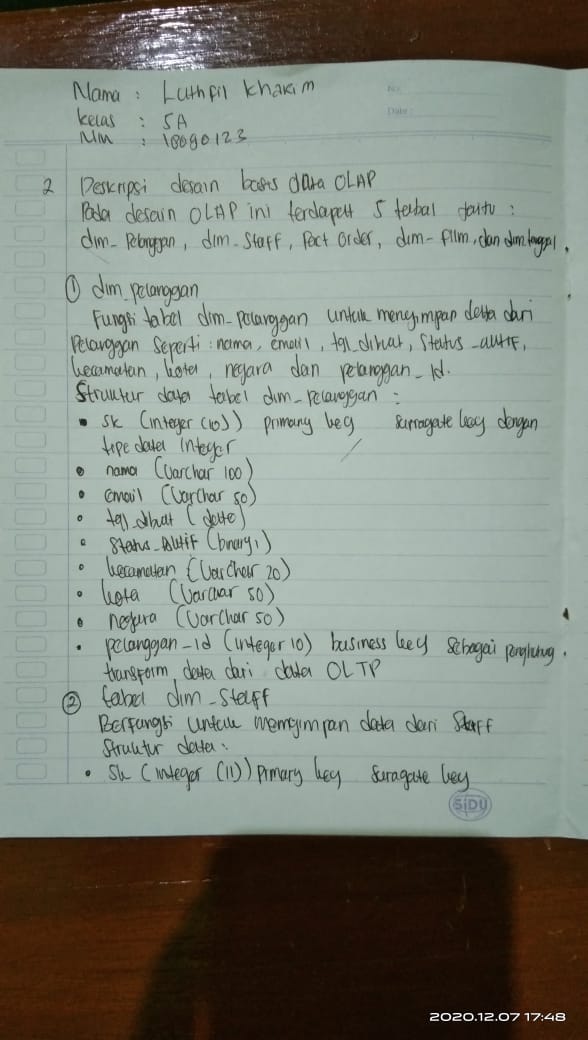 Nama : Luthfil Khakim
No:
kelas : 5A
Date :
Nim : 18090123
2 Deskripsi desain basis data OLAP
Pada desain OLAP ini terdapat 5 tabel yaitu :
dim_Pelanggan, dim_Staff, Fact Order, dim_film, dan dim_tanggal.
① dim_pelanggan
Fungsi tabel dim_pelanggan untuk menyimpan data dari
Pelanggan Seperti : nama, email, tgl_dibuat, Status_aktif,
kecamatan, kota, negara dan pelanggan_id.
Struktur data tabel dim_pelanggan :
• sk (integer (10)) primary key surragate key dengan
tipe data integer
• nama (Varchar 100)
• email (Varchar 50)
• tgl_dibuat (date)
• Status_aktif (binary 1)
• kecamatan (Varchar 20)
• kota (Varchar 50)
• negara (Varchar 50)
• pelanggan_id (integer 10) business key sebagai penghubung.
transform data dari data OLTP
② tabel dim_Staff
Berfungsi untuk menyimpan data dari Staff
Struktur data :
• sk (integer (11)) primary key suragate key
SiDU
2020.12.07 17:48